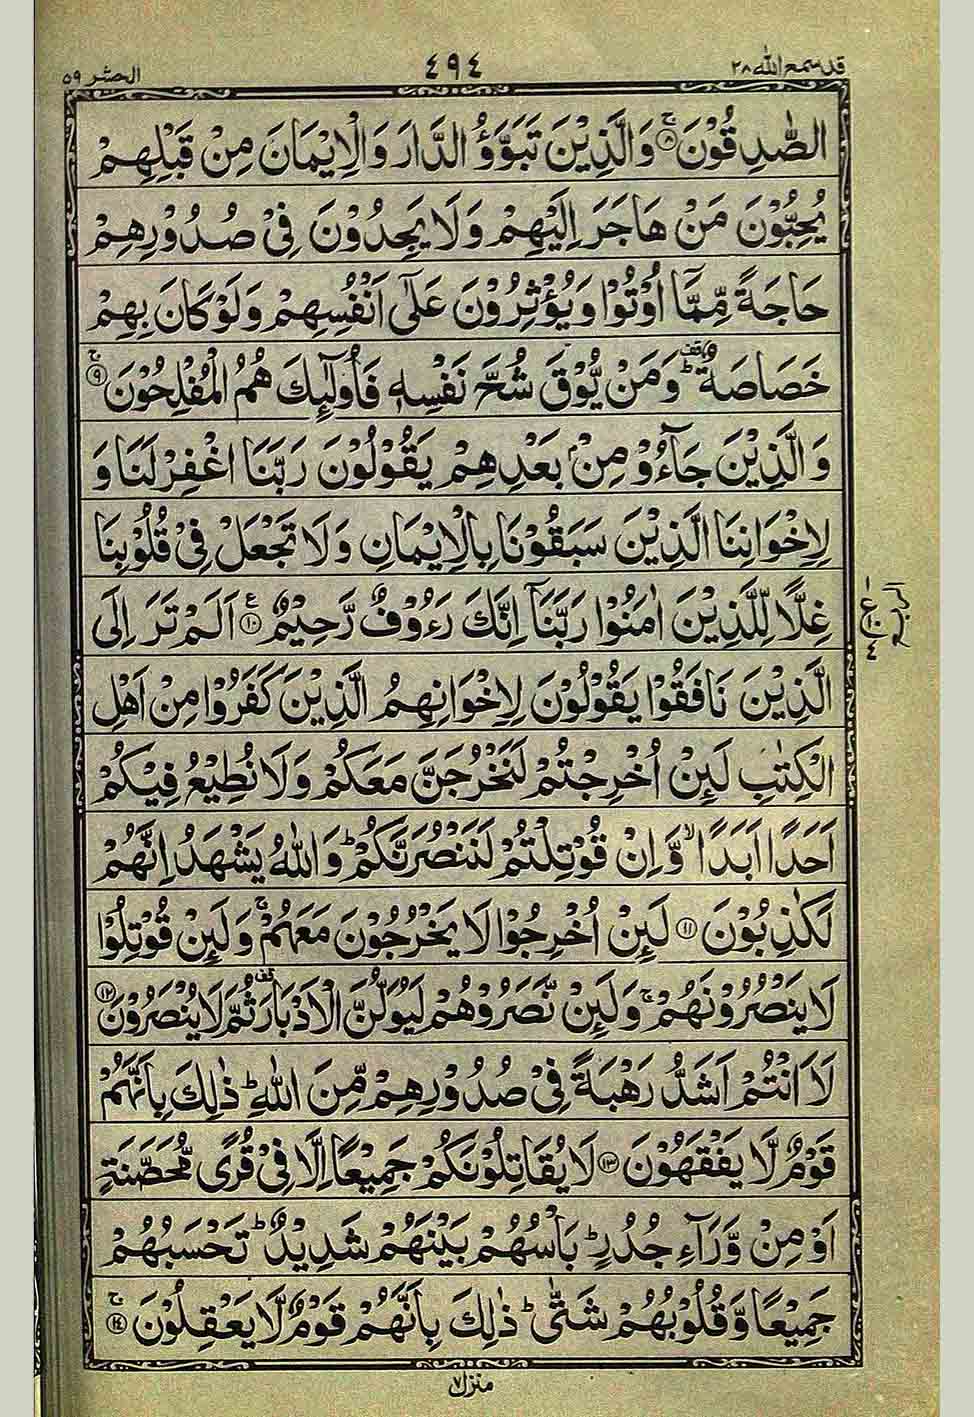 قد سمع الله ٢٨
٤٩٤
الحشر ٥٩
الصّٰدِقُوْنَ ۚ﴿۸﴾ وَالَّذِيْنَ تَبَوَّؤُ الدَّارَ وَالْاِيْمَانَ مِنْ قَبْلِهِمْ
يُحِبُّوْنَ مَنْ هَاجَرَ اِلَيْهِمْ وَلَا يَجِدُوْنَ فِيْ صُدُوْرِهِمْ
حَاجَةً مِّمَّاۤ اُوْتُوْا وَيُؤْثِرُوْنَ عَلٰۤى اَنْفُسِهِمْ وَلَوْ كَانَ بِهِمْ
خَصَاصَةٌ ؕ۫ وَمَنْ يُّوْقَ شُحَّ نَفْسِهٖ فَاُولٰٓئِكَ هُمُ الْمُفْلِحُوْنَ ۚ﴿۹﴾
وَالَّذِيْنَ جَآءُوْ مِنْۢ بَعْدِهِمْ يَقُوْلُوْنَ رَبَّنَا اغْفِرْ لَنَا وَ
لِاِخْوَانِنَا الَّذِيْنَ سَبَقُوْنَا بِالْاِيْمَانِ وَلَا تَجْعَلْ فِيْ قُلُوْبِنَا
غِلًّا لِّلَّذِيْنَ اٰمَنُوْا رَبَّنَاۤ اِنَّكَ رَءُوْفٌ رَّحِيْمٌ ﴿۱۰﴾ ع اَلَمْ تَرَ اِلَى
الَّذِيْنَ نَافَقُوْا يَقُوْلُوْنَ لِاِخْوَانِهِمُ الَّذِيْنَ كَفَرُوْا مِنْ اَهْلِ
الْكِتٰبِ لَئِنْ اُخْرِجْتُمْ لَنَخْرُجَنَّ مَعَكُمْ وَلَا نُطِيْعُ فِيْكُمْ
اَحَدًا اَبَدًا ۙ وَّاِنْ قُوْتِلْتُمْ لَنَنْصُرَنَّكُمْ ؕ وَاللّٰهُ يَشْهَدُ اِنَّهُمْ
لَكٰذِبُوْنَ ﴿۱۱﴾ لَئِنْ اُخْرِجُوْا لَا يَخْرُجُوْنَ مَعَهُمْ ۚ وَلَئِنْ قُوْتِلُوْا
لَا يَنْصُرُوْنَهُمْ ۚ وَلَئِنْ نَّصَرُوْهُمْ لَيُوَلُّنَّ الْاَدْبَارَ ۫ ثُمَّ لَا يُنْصَرُوْنَ ﴿۱۲﴾
لَا اَنْتُمْ اَشَدُّ رَهْبَةً فِيْ صُدُوْرِهِمْ مِّنَ اللّٰهِ ؕ ذٰلِكَ بِاَنَّهُمْ
قَوْمٌ لَّا يَفْقَهُوْنَ ﴿۱۳﴾ لَا يُقَاتِلُوْنَكُمْ جَمِيْعًا اِلَّا فِيْ قُرًى مُّحَصَّنَةٍ
اَوْ مِنْ وَّرَآءِ جُدُرٍ ؕ بَاْسُهُمْ بَيْنَهُمْ شَدِيْدٌ ؕ تَحْسَبُهُمْ
جَمِيْعًا وَّقُلُوْبُهُمْ شَتّٰى ؕ ذٰلِكَ بِاَنَّهُمْ قَوْمٌ لَّا يَعْقِلُوْنَ ۚ﴿۱۴﴾
منزل ٧